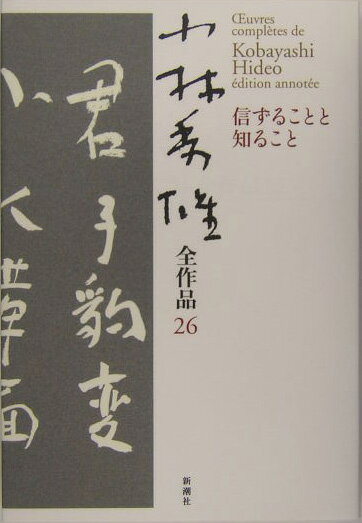 Œuvres
complètes de
Kobayashi
Hideo
édition annotée
信ずることと
知ること
小林秀雄
全作品 26
君子豹変
小人革面
新潮社